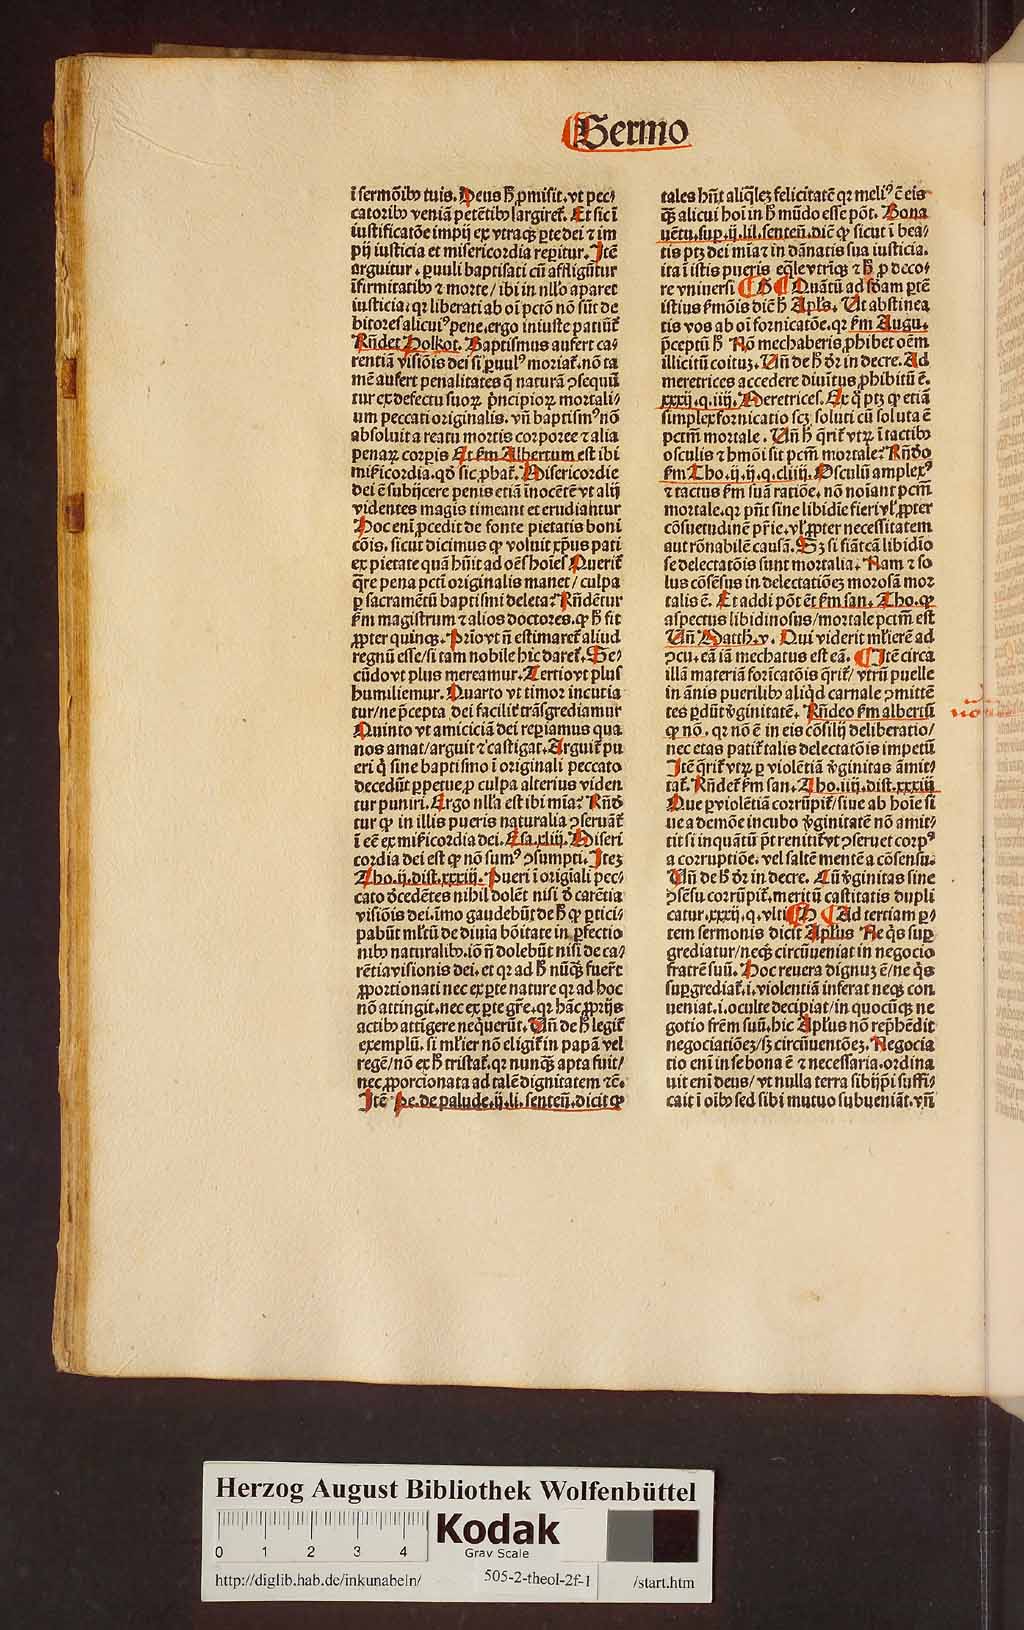 Sermo
ī sermōibꝰ tuis. Deus hͦ ꝓmisit. vt pec⸗
catoribꝰ veniā petētibꝰ largiret᷑. Et sic ī
iustificatōe impij ex vtraqꝫ ꝑte dei ⁊ im
pij iusticia et misericordia reꝑitur. Itē
arguitur. ꝑuuli baptisati cū affligūtur
īfirmitatibꝰ ⁊ morte/ ibi in nll̄o aparet
iusticia: qꝛ liberati ab oī pctō nō sūt de
bitores alicuiꝰ pene. ergo iniuste patiūt᷑
Rn̄det Holkot. Baptismus aufert ca⸗
rentiā visiōis dei si ꝑuulꝰ moriat᷑. nō ta
mē aufert penalitates q̄ naturā ꝯsequū
tur ex defectu suoꝝ pͥncipioꝝ mortali⸗
um peccati originalis. vn̄ baptismꝰ nō
absoluit a reatu mortis corporee ⁊ alia
penaꝝ corꝑis Et ẜm Albertum est ibi
mīcordia. qd̓ sic ꝓbat᷑. Misericordie
dei ē subijcere penis etiā īnocētē vt alij
videntes magis timeant et erudiantur
Hoc enī ꝓcedit de fonte pietatis boni
cōis. sicut dicimus ꝙ voluit xp̄us pati
ex pietate quā hūit ad oēs hoīes Querit᷑
q̄re pena pctī originalis manet/ culpa
ꝑ sacramētū baptismi deleta? Rn̄dētur
ẜm magistrum ⁊ alios doctores. ꝙ hͦ fit
ꝓpter quinqꝫ. Prīo vt nō estimaret᷑ aliud
regnū esse/ si tam nobile hic daret᷑. Se⸗
cūdo vt plus mereamur. Tertio vt plus
humiliemur. Quarto vt timor incutia
tur/ ne p̄cepta dei facilit᷑ trāsgrediamur
Quinto vt amiciciā dei reꝑiamus qua
nos amat/ arguit ⁊ castigat. Arguit᷑ pu
eri qͥ sine baptismo ī originali peccato
decedūt ꝑpetue ꝓ culpa alterius viden
tur puniri. Ergo nll̄a est ibi mīa? Rn̄d̓
tur ꝙ in illis pueris naturalia ꝯseruāt᷑
ī eē ex mīcordia dei. Esa. xliij. Miseri
cordia dei est ꝙ nō sumꝰ ꝯsumpti. Iteꝫ
Tho. ij. dist. xxxiij. Pueri ī origīali pec⸗
cato d̓cedētes nihil dolēt nisi d̓ carētia
visiōis dei. īmo gaudebūt de hͦ ꝙ ꝑtici⸗
pabūt ml̄tū de diuīa bōitate in ꝑfectio
nibꝰ naturalibꝰ. iō nō dolebūt nisi de ca⸗
rētia visionis dei. et qꝛ ad hͦ nūqꝫ fuer̄t
ꝓportionati nec ex ꝑte nature qꝛ ad hoc
nō attingit. nec ex ꝑte gr̄e. qꝛ hāc ꝓprijs
actibꝰ attīgere neq̄uerūt. Vn̄ de hͦ legit᷑
exemplū. si ml̓ier nō eligit᷑ in papā vel
regē/ nō ex hͦ tristat᷑. qꝛ nunqꝫ apta fuit/
nec ꝓporcionata ad talē dignitatem ⁊c̄.
Itē Pe. de palude. ij. li. sentēn. dicit ꝙ
tales hn̄t aliq̄leꝫ felicitatē qꝛ meliꝰ ē eis
qꝫ alicui hoī in hͦ mūdo esse pōt. Bona
uētu. sup. ij. lil. sentēn. diē ꝙ sicut ī bea⸗
tis ptꝫ dei mīa ⁊ in dānatis sua iusticia.
ita ī istis pueris eq̄le vtrīqꝫ ⁊ hͦ ꝓ deco⸗
re vniuersi ¶ G ¶ Quātū ad scd̓am ꝑtē
istius ẜmōis diē hͦ Apl̄s. Vt abstinea
tis vos ab oī fornicatōe. qꝛ ẜm Augu.
p̄ceptū hͦ Nō mechaberis ꝓhibet oēm
illicitū coituꝫ. Vn̄ de hͦ d̓r in decre. Ad
meretrices accedere diuītus ꝓhibitū ē.
xxxij. q. iiij. Meretrices. Ex q̊ ptꝫ ꝙ etiā
simplex fornicatio scꝫ soluti cū soluta ē
pctm̄ mortale. Vn̄ hͦ q̄rit᷑ vtꝝ ī tactibꝰ
osculis ⁊ hmōi sit pctm̄ mortale? Rn̄do
ẜm Tho. ij. ij. q. cliiij. Osculū amplexꝰ
⁊ tactus ẜm suā ratiōe. nō noīant pctm̄
mortale. qꝛ pn̄t sine libidīe fieri vl̓ ꝓpter
cōsuetudinē pr̄ie. vl̓ ꝓpter necessitatem
aut rōnabilē causā. Sꝫ si fiāt cā libidīo
se delectatōis sunt mortalia. Nam ⁊ so
lus cōsēsus in delectatiōeꝫ morosā mor
talis ē. Et addi pōt et̄ ẜm san. Tho. ꝙ
aspectus libidinosus/ mortale pctm̄ est
Vn̄ Matth. v. Qui viderit ml̓ierē ad
ꝯcu. eā iā mechatus est eā. ¶ Itē circa
illā materiā fornicatōis q̄rit᷑/ vtrū puelle
in ānis puerilibꝰ aliqͥd carnale ꝯmittē
tes ꝑdūt v̓ginitatē. Rn̄deo ẜm albertū
ꝙ nō. qꝛ nō ē in eis cōsilij deliberatio/
nec etas patit᷑ talis delectatōis impetū
Itē q̄rit᷑ vtꝝ ꝑ violētiā v̓ginitas āmit⸗
tat᷑. Rn̄det᷑ ẜm san. Tho. iiij. dist. xxxiij
Que ꝑ violētiā corrūpit᷑/ siue ab hoīe si
ue a demōe incubo v̓ginitatē nō amit⸗
tit si inquātū p̄t renitit᷑ vt ꝯseruet corpꝰ
a corruptiōe. vel saltē mentē a cōsensu.
Vn̄ de hͦ d̓r in decre. Cū v̓ginitas sine
ꝯsēsu corrūpit᷑. meritū castitatis dupli
catur. xxxij. q. vlti ¶ H ¶ Ad tertiam ꝑ⸗
tem sermonis dicit Apl̄us Ne qͥs suꝑ
grediatur/ neqꝫ circūueniat in negocio
fratrē suū. Hoc reuera dignuꝫ ē/ ne qͥs
suꝑgrediat᷑. i. violentiā inferat neqꝫ con
ueniat. i. oculte decipiat/ in quocūqꝫ ne
gotio fr̄em suū. hic Apl̄us nō rep̄hēdit
negociatiōeꝫ/ sꝫ circūuentōeꝫ. Negocia
tio enī in se bona ē ⁊ necessaria. ordina
uit enī deus/ vt nulla terra sibijp̄i suffi⸗
cait ī oībꝰ sed sibi mutuo subueniāt. vn̄
Herzog August Bibliothek Wolfenbüttel
0 1 2 3 4
Kodak
Gray Scale
http://diglib.hab.de/inkunabeln/ 505-2-theol-2f-1 /start.htm